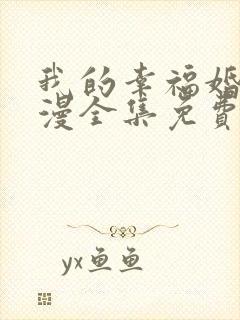 我的幸福婚
漫全集免费
yx鱼鱼